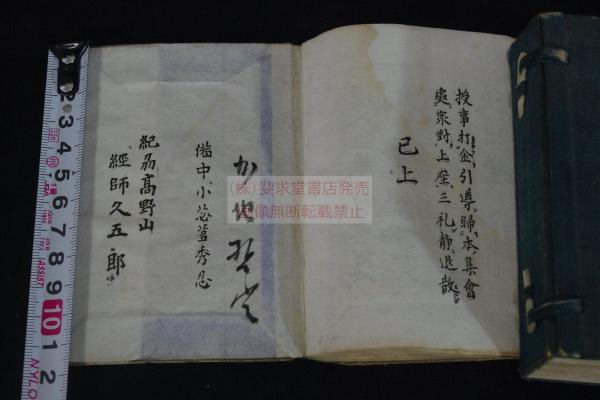 授事打金引導歸本集會
處衆對上座三礼静退散
已上
備中小苾蒭秀忍
紀刕髙野山
經師久五郎
(株)斐求堂書店発売
画像無断転載禁止
2 3 4 5 6 7 8 9 10 1 2
NYLO